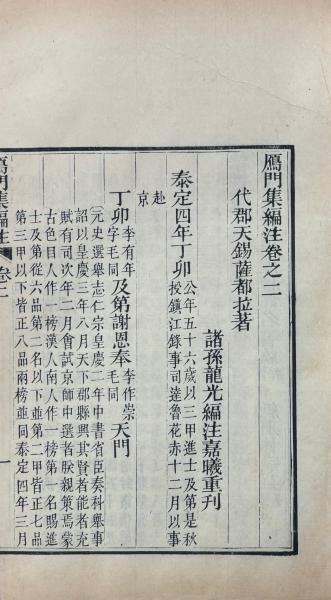 鴈門集編注卷之二
代郡天錫薩都拉著
諸孫龍光編注嘉曦重刊
泰定四年丁卯公年五十六歲以三甲進士及第是秋
授鎮江錄事司達魯花赤十二月以事
赴
京
丁卯李有年
字毛同及第謝恩奉李作崇
毛同天門
元史選舉志仁宗皇慶二年中書省臣奏科舉事
詔以皇慶三年八月天下郡縣興其賢者能者充
賦有司次年二月會試京師中選者朕親策焉蒙
古色目人作一榜漢人南人作一榜第一名賜進
士及第從六品第二名以下並第二甲皆正七品
第三甲以下皆正八品兩榜並同泰定四年三月
鴈門集編注
卷二
一